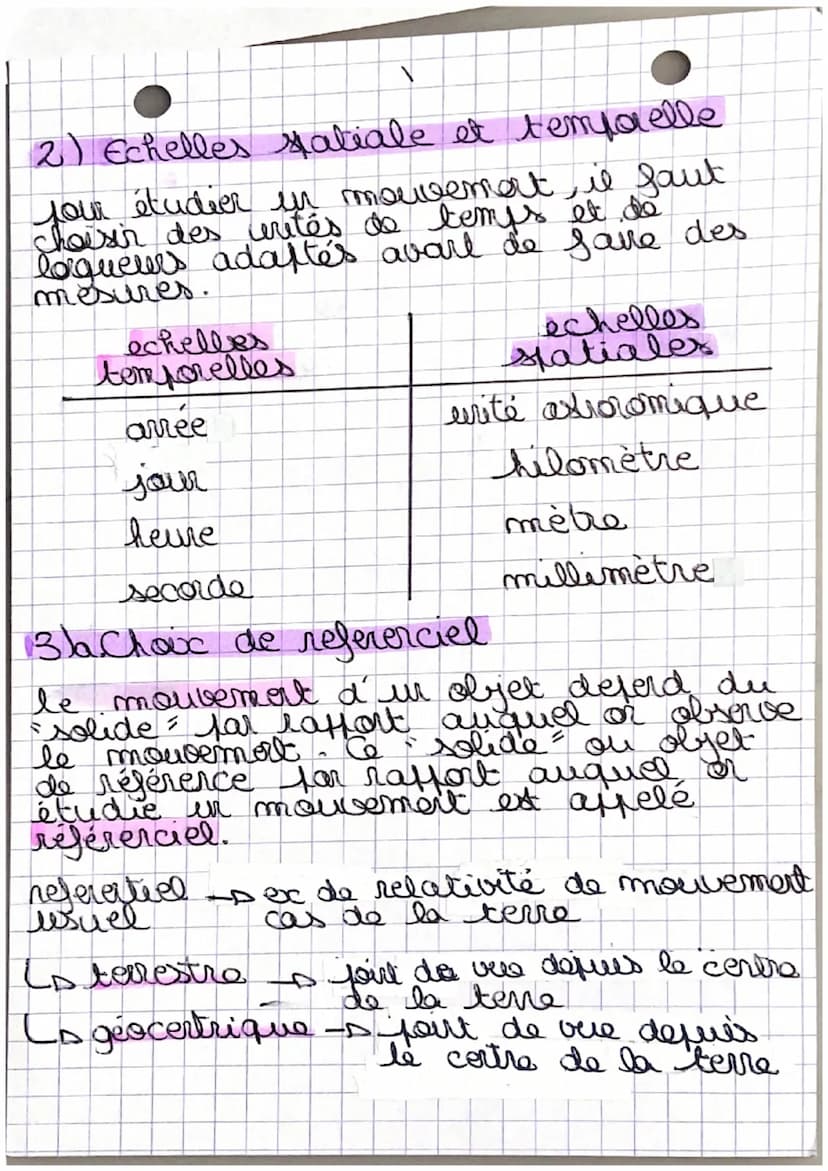 2) Echelles spatiale et temporelle
pour étudier un mouvement, il faut
choisir des unités de temps et de
longueurs adaptés avant de faire des
mesures.
echelles temporelles
echelles spatiales
année
unité astronomique
jour
kilomètre
heure
mètre
seconde
millimètre
3)a. Choix de referenciel
le mouvement d'un objet depend du
"solide" par rapport auquel on observe
le mouvement. Ce "solide" ou objet
de référence par rapport auquel on
étudie un mouvement est appelé
référenciel.
referentiel → ex de relativité de mouvement
usuel cas de la terre
↳ terrestre → point de vue depuis le centre
de la terre
↳ géocentrique → point de vue depuis
le centre de la terre